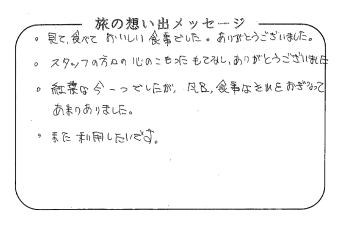 旅の想い出メッセージ
。見て、食べて おいしい 食事でした。ありがとうございました。
。スタッフの方々の心のこもった もてなし、ありがとうございました
。紅葉は今一つでしたが、風呂、食事はそれをおぎなって
あまりありました。
。また 利用したいです。